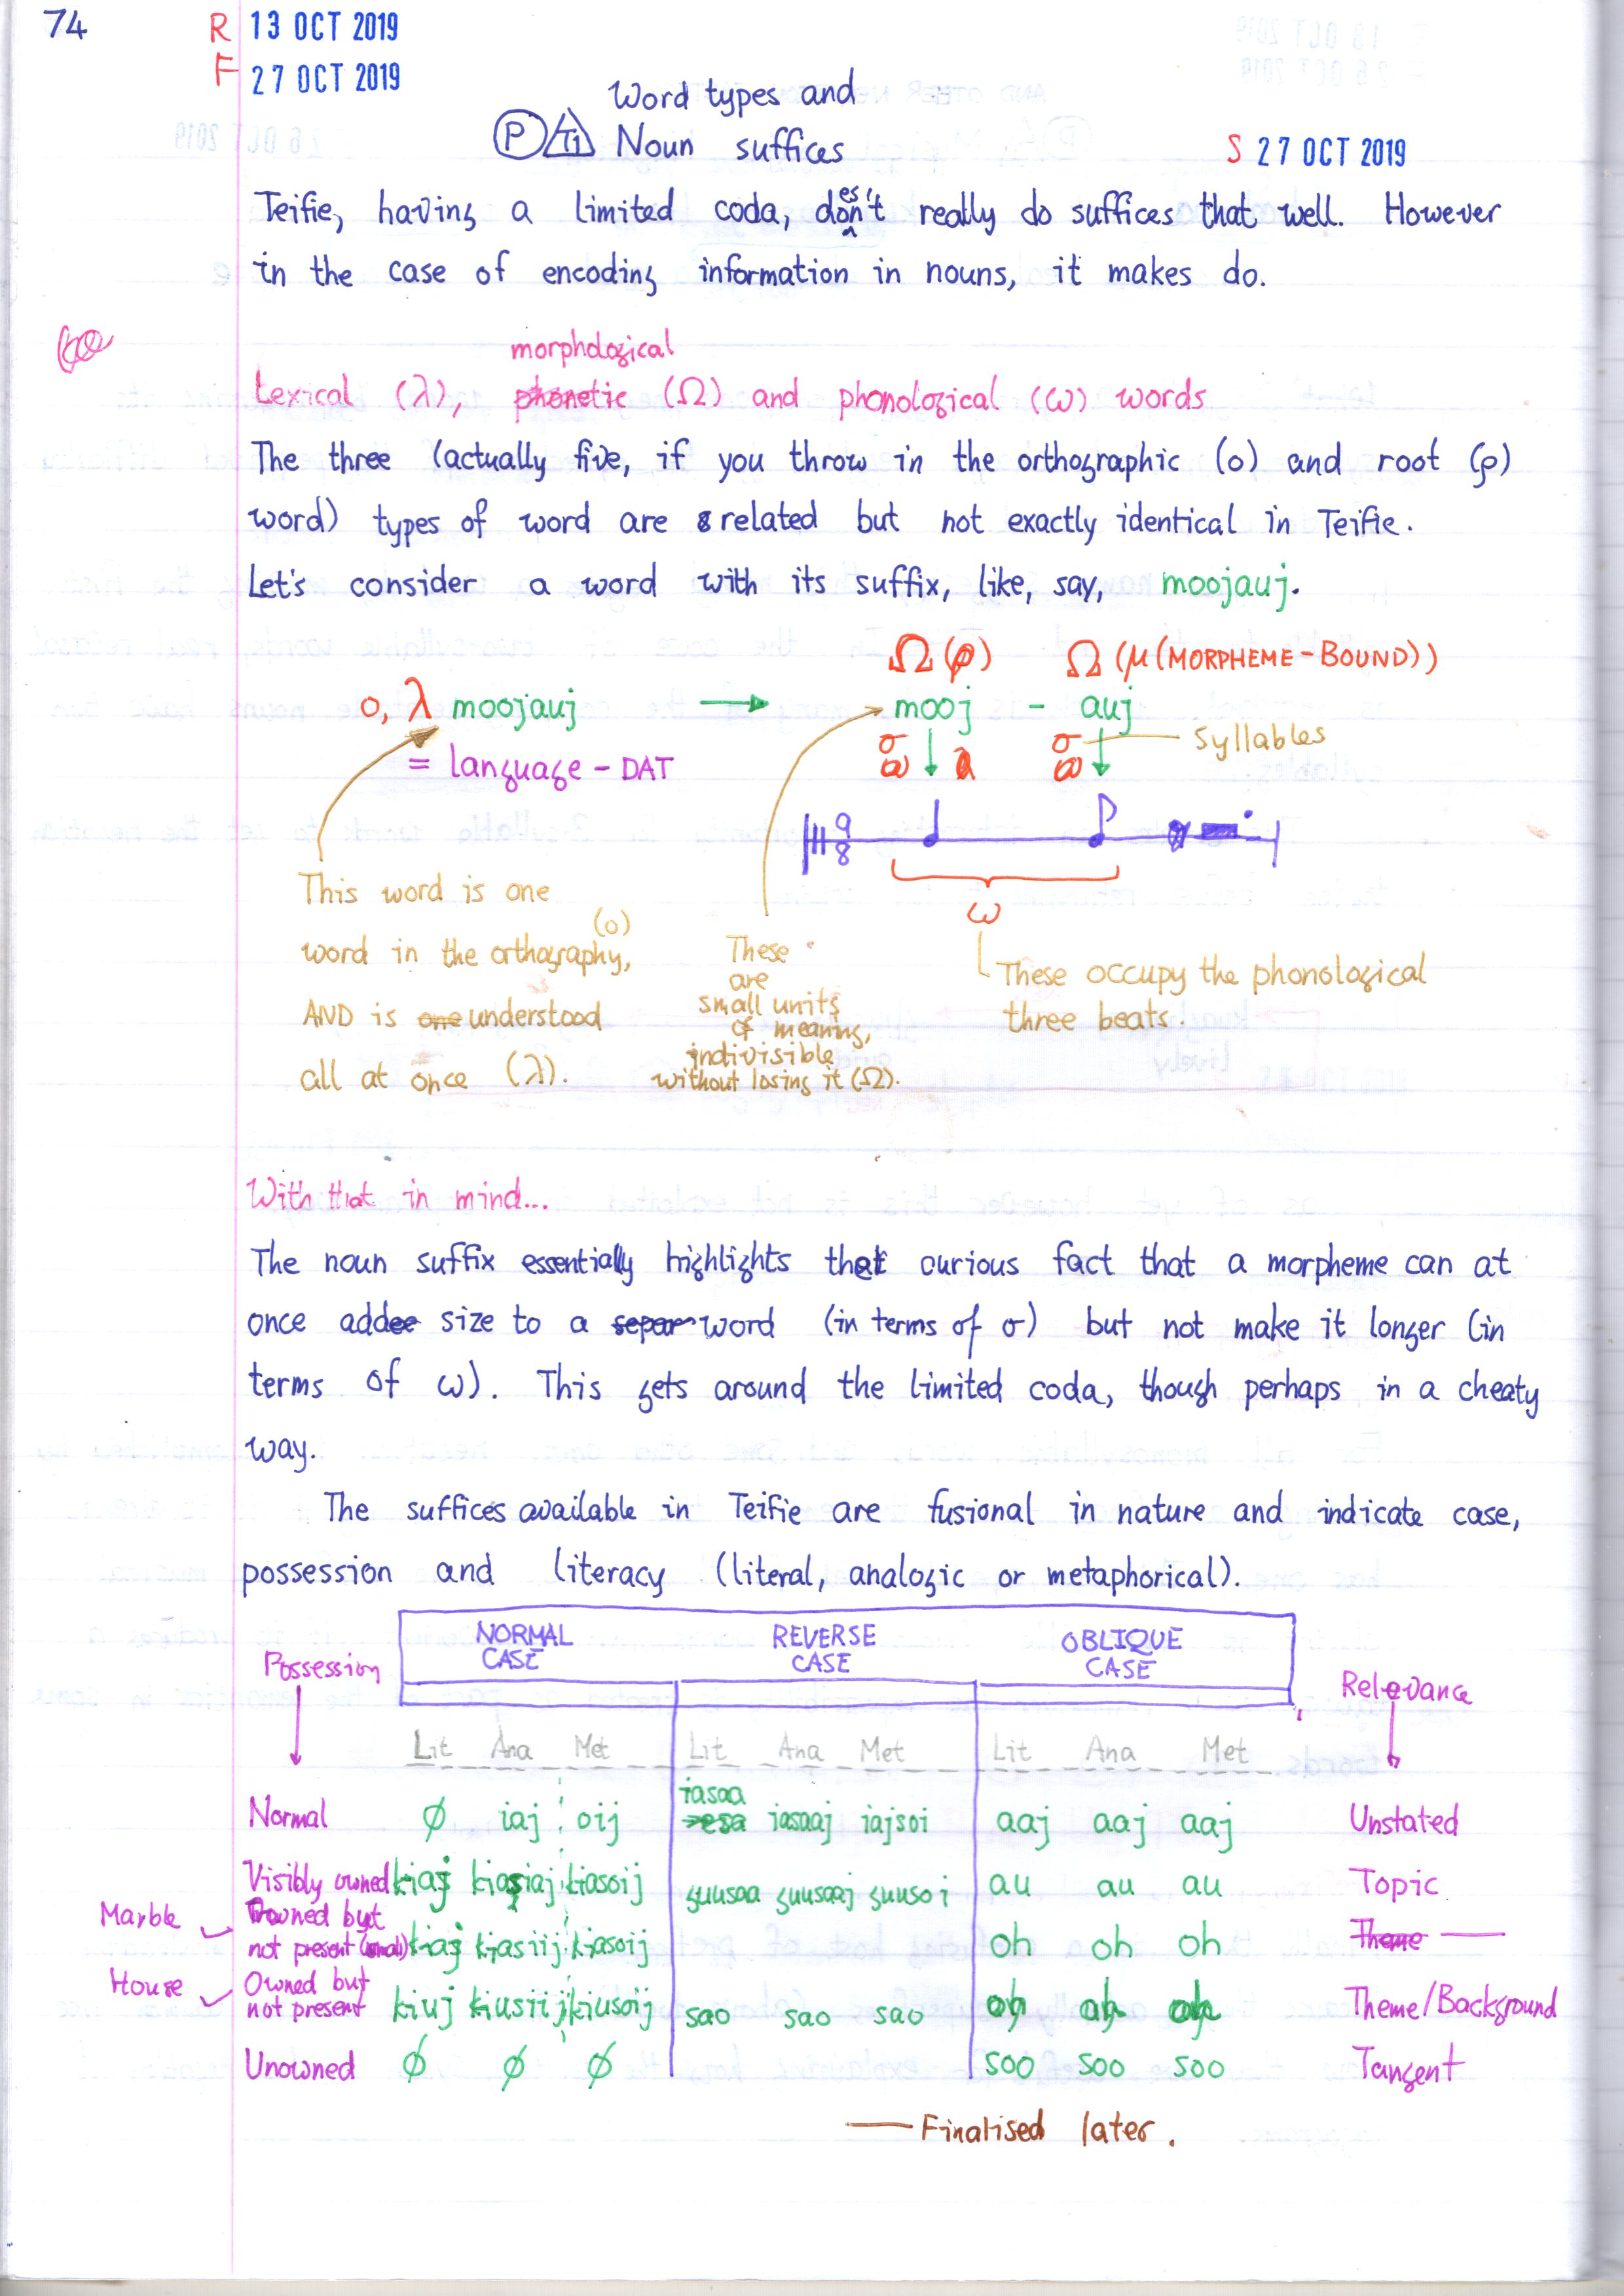 74
R 13 OCT 2019
F 27 OCT 2019
Word types and
P Ti Noun suffices
S 27 OCT 2019
Teifie, having a limited coda, doesn't really do suffices that well. However
in the case of encoding information in nouns, it makes do.
morphological
Lexical (λ), phonetic (Ω) and phonological (ω) words
The three (actually five, if you throw in the orthographic (o) and root (ρ)
word) types of word are related but not exactly identical in Teifie.
Let's consider a word with its suffix, like, say, moojauj.
Ω (ρ) Ω (μ (MORPHEME-BOUND))
o, λ moojauj → mooj - auj
σ σ Syllables
= language - DAT
9
8
ω
This word is one
(o)
word in the orthography,
AND is one understood
all at once (λ).
These
are
small units
of meaning,
indivisible
without losing it (Ω).
These occupy the phonological
three beats.
With that in mind...
The noun suffix essentially highlights that curious fact that a morpheme can at
once add size to a separ word (in terms of σ) but not make it longer (in
terms of ω). This gets around the limited coda, though perhaps in a cheaty
way.
The suffices available in Teifie are fusional in nature and indicate case,
possession and literacy (literal, analogic or metaphorical).
NORMAL CASE REVERSE CASE OBLIQUE CASE
Possession
Relevance
Lit Ana Met Lit Ana Met Lit Ana Met
iasaa
Normal ∅ iaj oij iasaaj iajsoi aaj aaj aaj Unstated
Visibly owned kiaj kiasiaj kiasoij suusaa suusaaj suusoi au au au Topic
Marble
Owned but
not present (small) kiaj kiasiij kiasoij oh oh oh Theme —
House
Owned but
not present kiuj kiusiij kiusoij sao sao sao Theme/Background
Unowned ∅ ∅ ∅ soo soo soo Tangent
— Finalised later.